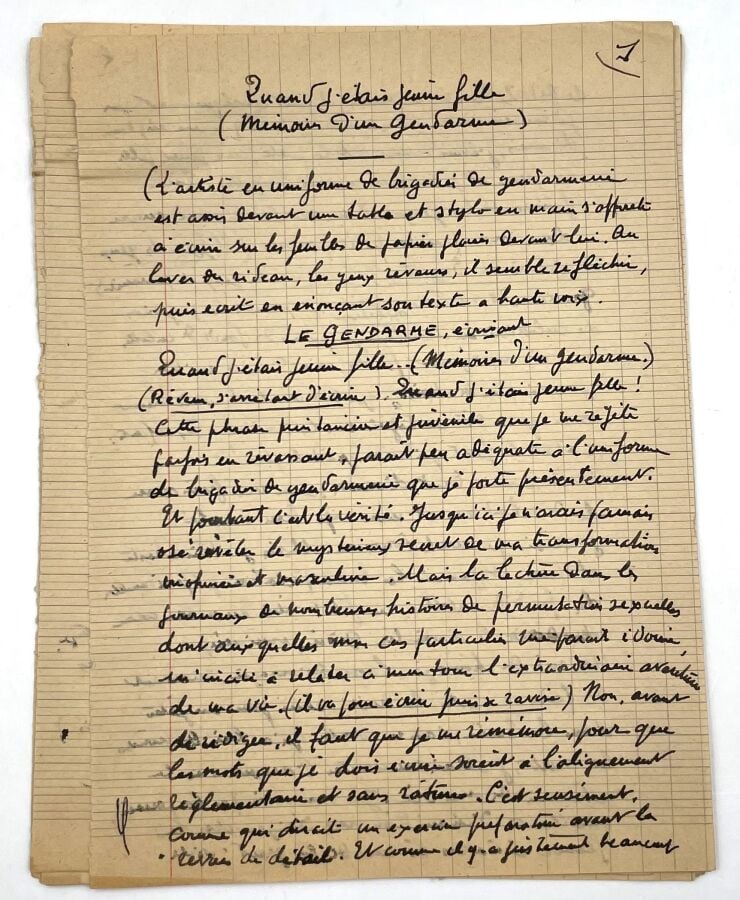 1
Quand j'étais jeune fille
(Mémoires d'un Gendarme)
(L'artiste en uniforme de brigadier de gendarmerie
est assis devant une table et stylo en main s'apprête
à écrire sur les feuilles de papier placées devant lui. Au
lever du rideau, les yeux rêveurs, il semble réfléchir,
puis écrit en énonçant son texte à haute voix.
LE GENDARME, écrivant
Quand j'étais jeune fille... (Mémoires d'un gendarme.)
(Rêveur, s'arrêtant d'écrire). Quand j'étais jeune fille !
Cette phrase printanière et juvénile que je me répète
parfois en rêvassant, paraît peu adéquate à l'uniforme
de brigadier de gendarmerie que je porte présentement.
Et pourtant c'est la vérité. Jusqu'ici je n'avais jamais
osé révéler le mystérieux secret de ma transformation
et masculine. Mais la lecture dans les
journaux de nombreuses histoires de permutations sexuelles
dont auxquelles mon cas particulier me paraît idoine,
m'incite à relater à mon tour l'extraordinaire aventure
de ma vie. (il va pour écrire puis se ravise) Non, avant
de rédiger, il faut que je me remémore, pour que
les mots que je dois écrire soient à l'alignement
règlementaire et sans rature. C'est censément,
comme qui dirait un exercice préparatoire avant la
revue de détail. Et comme il y a justement beaucoup